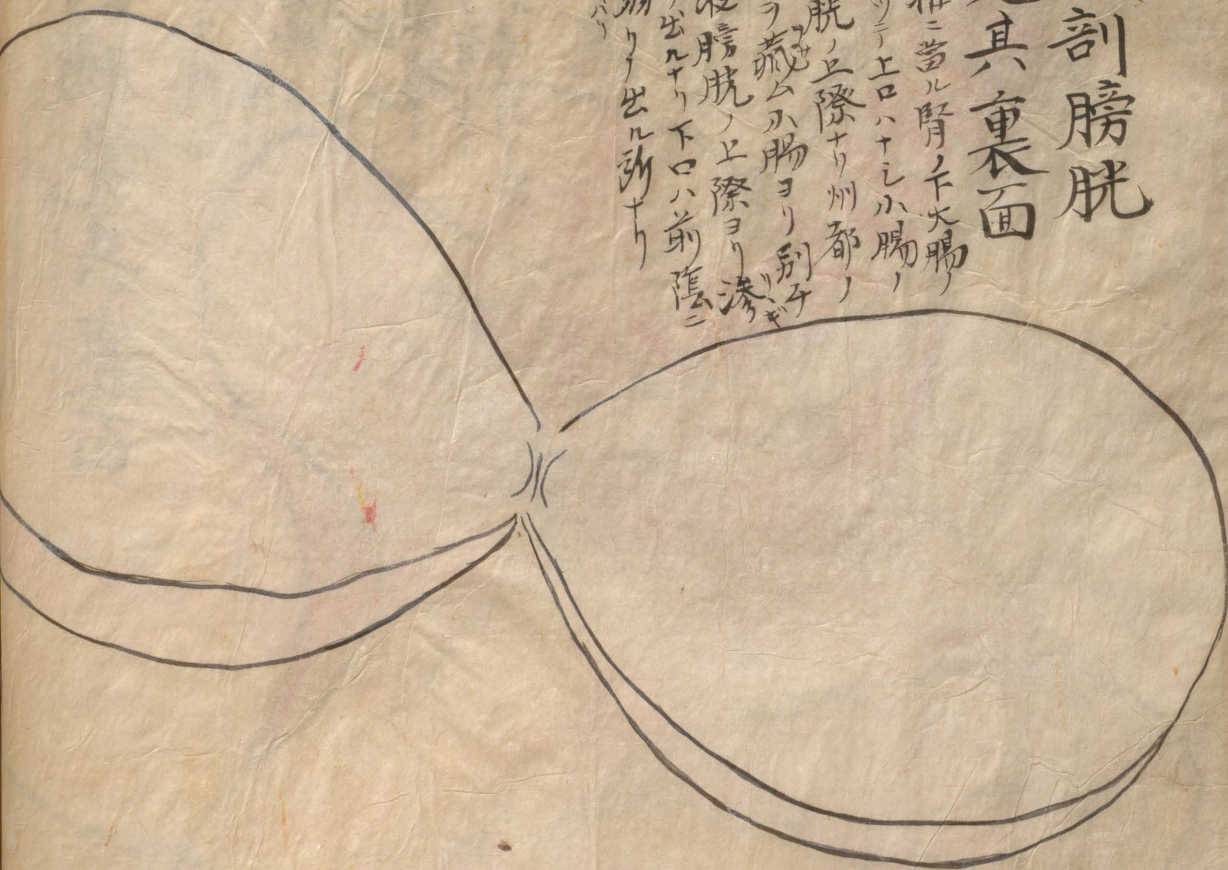 剖膀胱
其裏面
ニ當ル腎ノ下大腸ノ
テ上口ハナシ小腸ノ
胱ノ上際ナリ州都ノ
ヲ藏ム小腸ヨリ別チ
膀胱ノ上際ヨリ滲
出ルナリ下口ハ前陰ニ
リ出ル所ナリ